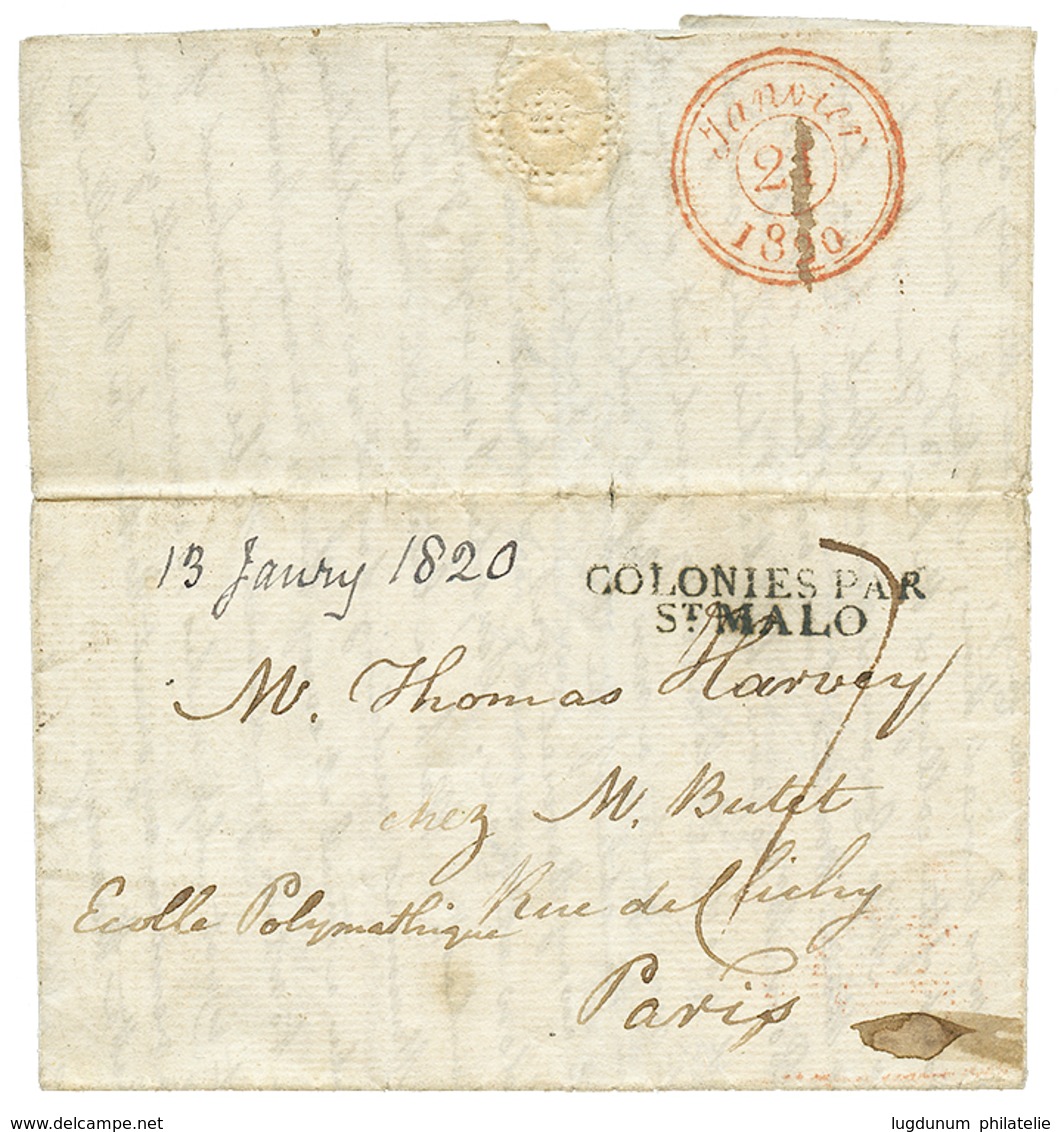 Janvier
21
1820
13 Janry 1820
COLONIES PAR
ST. MALO
M. Thomas Harvey
chez M. Butet
Ecolle Polymathique Rue de Clichy
Paris
delcampe.net
lugdunum philatelie